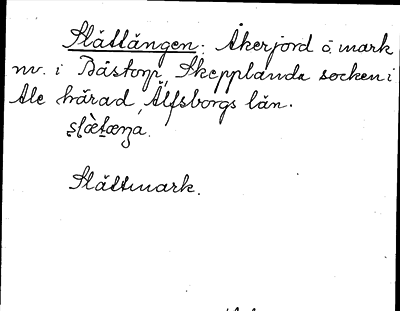 Slättängen: Åkerjord o. mark
nv. i Båstorp, Skepplanda socken i
Ale härad, Älfsborgs län.
slæ̀tæŋa.
Slättmark.